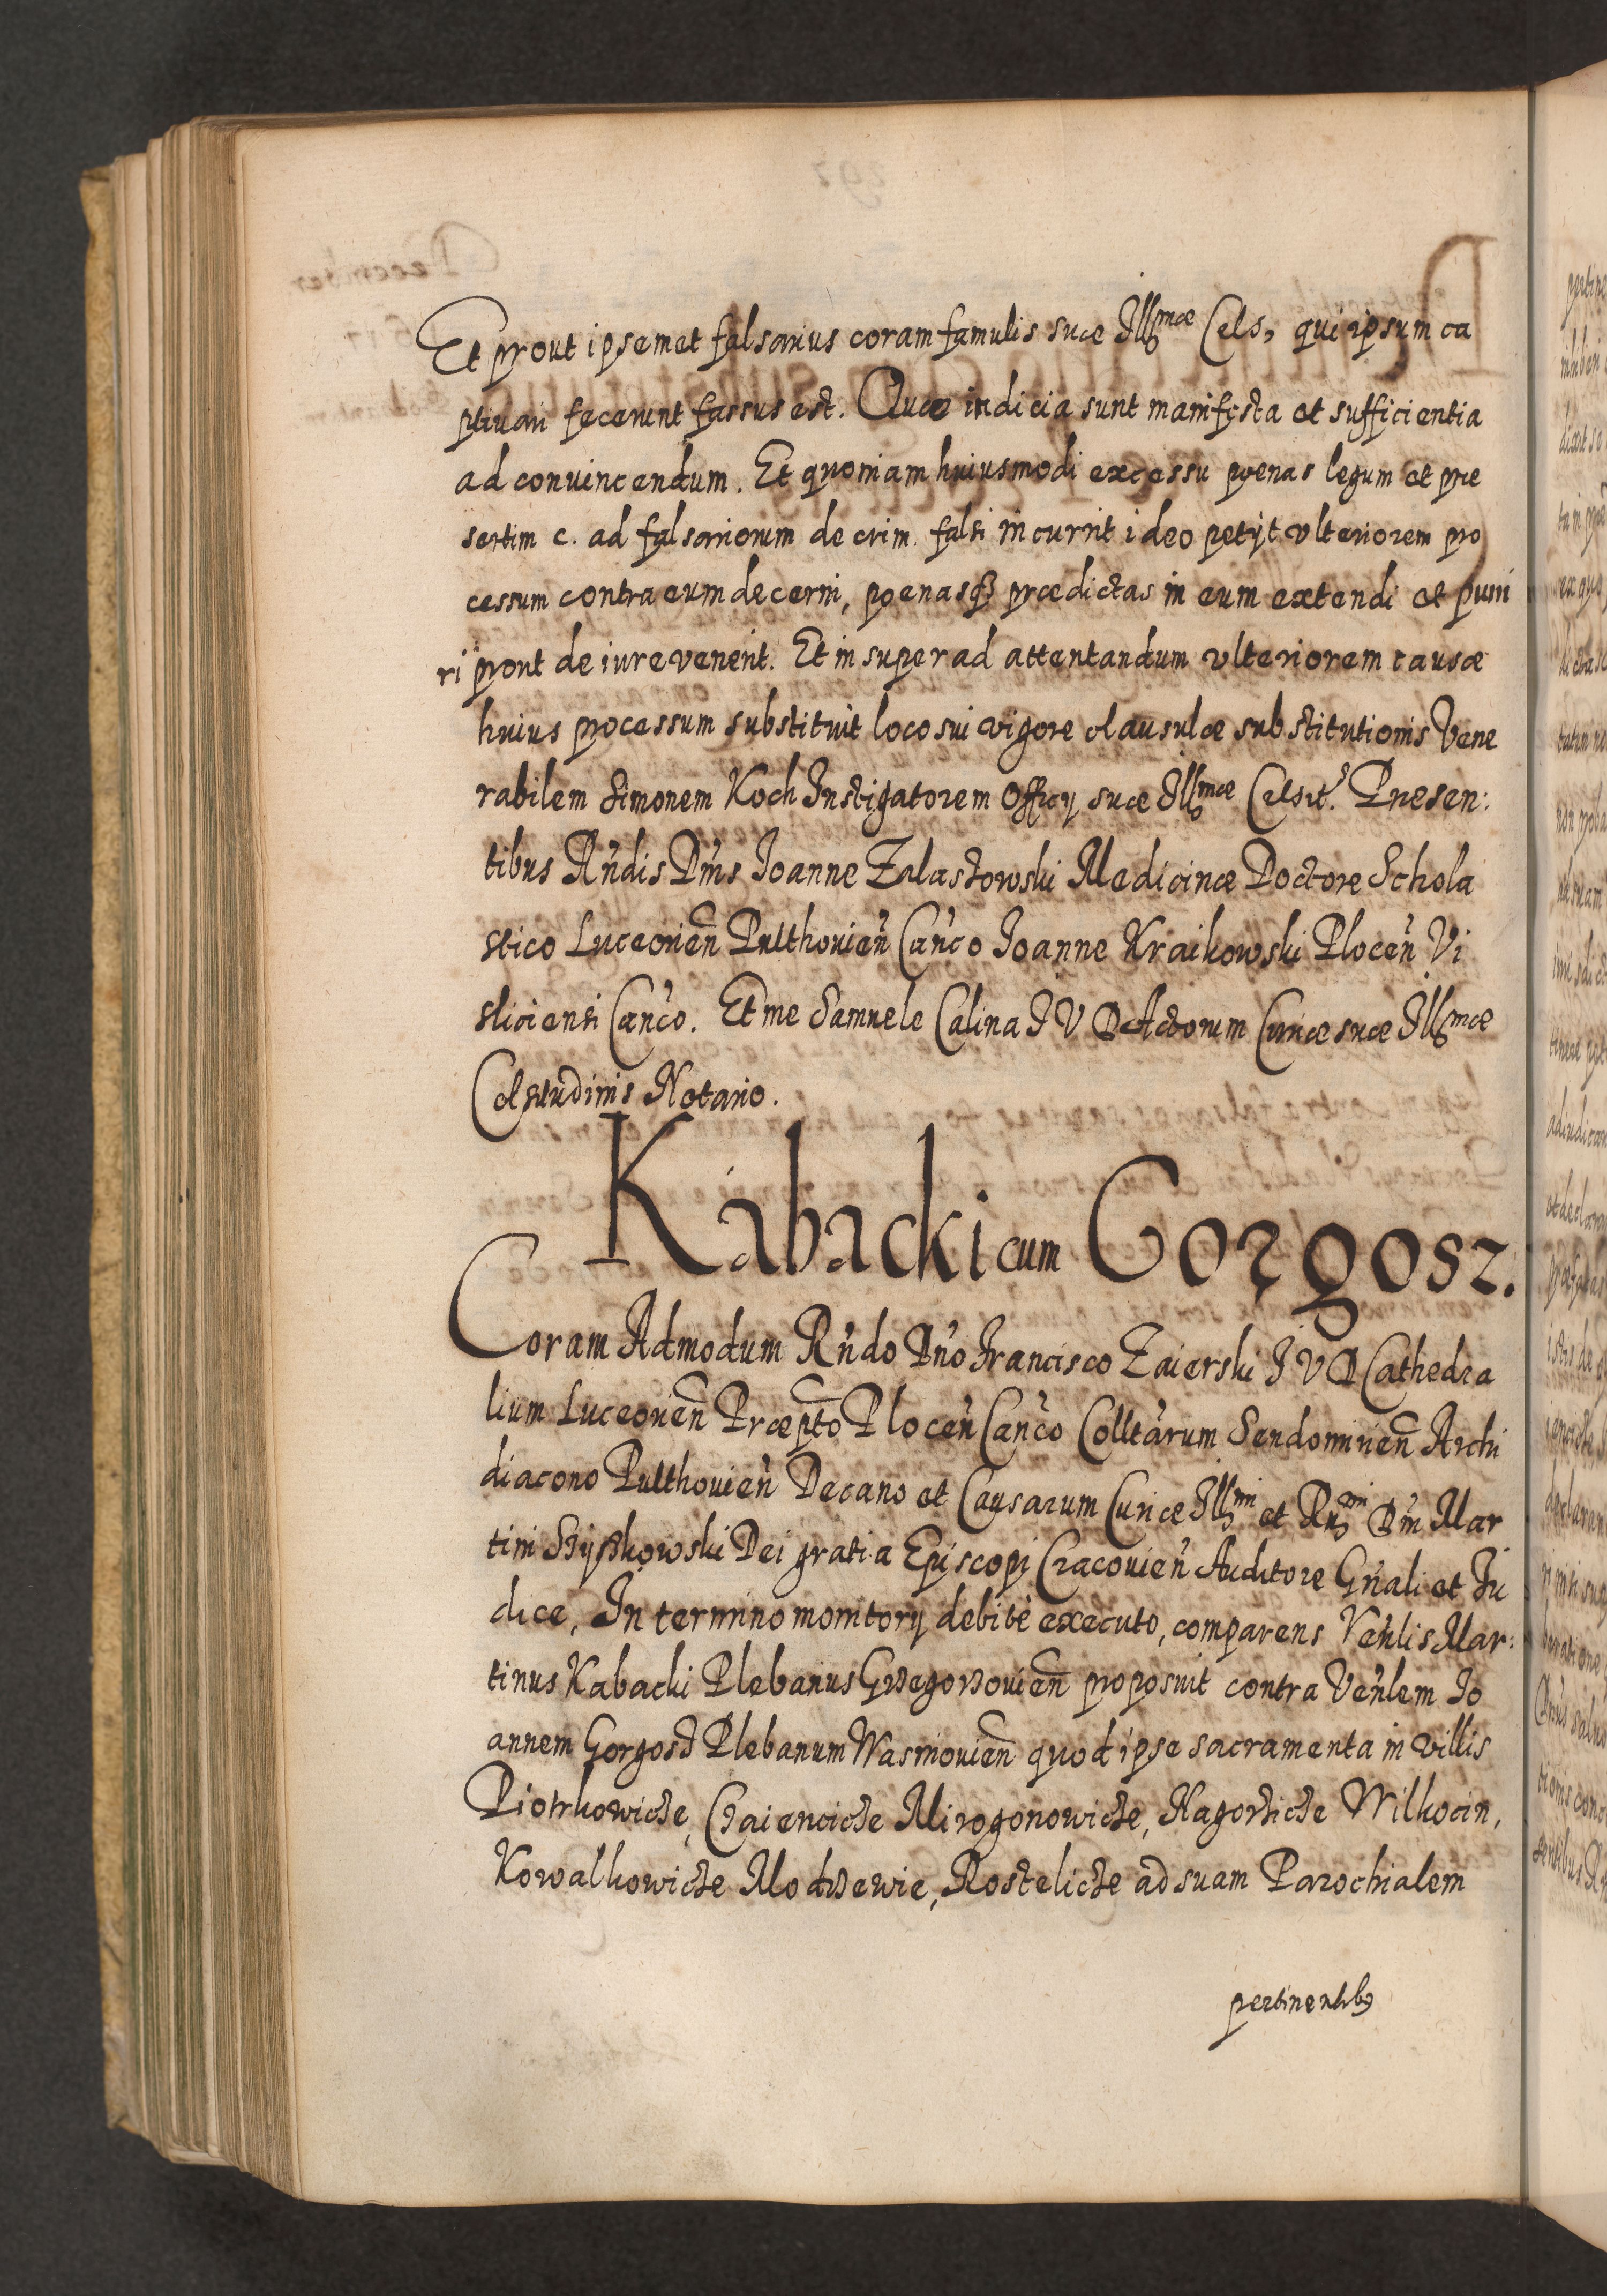 Et prout ipsemet falsarius coram famulis suæ Illmæ Cels, qui ipsum ca
ptivari fecerunt fassus est. Quæ indicia sunt manifesta et sufficientia
ad convincendum. Et quoniam huiusmodi excessu poenas legum et præ
sertim c. ad falsariorum de crim. falsi incurrit ideo petijt ulteriorem pro
cessum contra eum decerni, poenasq3 prædictas in eum extendi et puni
ri prout de iure venerit. Et insuper ad attentandum ulteriorem causæ
huius processum substituit loco sui vigore clausulæ substitutionis Vene
rabilem Simonem Koch Instigatorem Officij suæ Illmæ Celsit. Præsen:
tibus Rndis Dnis Joanne Zalastowski Medicinæ Doctore Schola
stico Luceorien Pulthovien Canco Joanne Kraikowski Plocen Vi
sliciensi Canco. Et me Samuele Calina J V D Actorum Curiæ suæ Illmæ
Celsitudinis Notario.
Kabacki cum Gorgosz.
Coram Admodum Rndo Dno Francisco Zaierski J V D Cathedra
lium Luceorien Præpto Plocen Canco Colltarum Sendomirien Archi
diacono Pulthovien Decano et Causarum Curiæ Illmi et Rndmi Dni Mar
tini Szyszkowski Dei gratia Episcopi Cracovien Auditore Gnali et Ju
dice, In termino monitorij debite executo, comparens Venlis Mar:
tinus Kabacki Plebanus Grzegorzovien proposuit contra Venlem Jo
annem Gorgosz Plebanum Wasniovien quod ipse sacramenta in villis
Piotrkowicze, Czaiencicze Mirogonowicze, Nagorzicze Wilkocin,
Kowalkowicze Modrzewie, Rostelicze ad suam Parochialem
pertinentib9